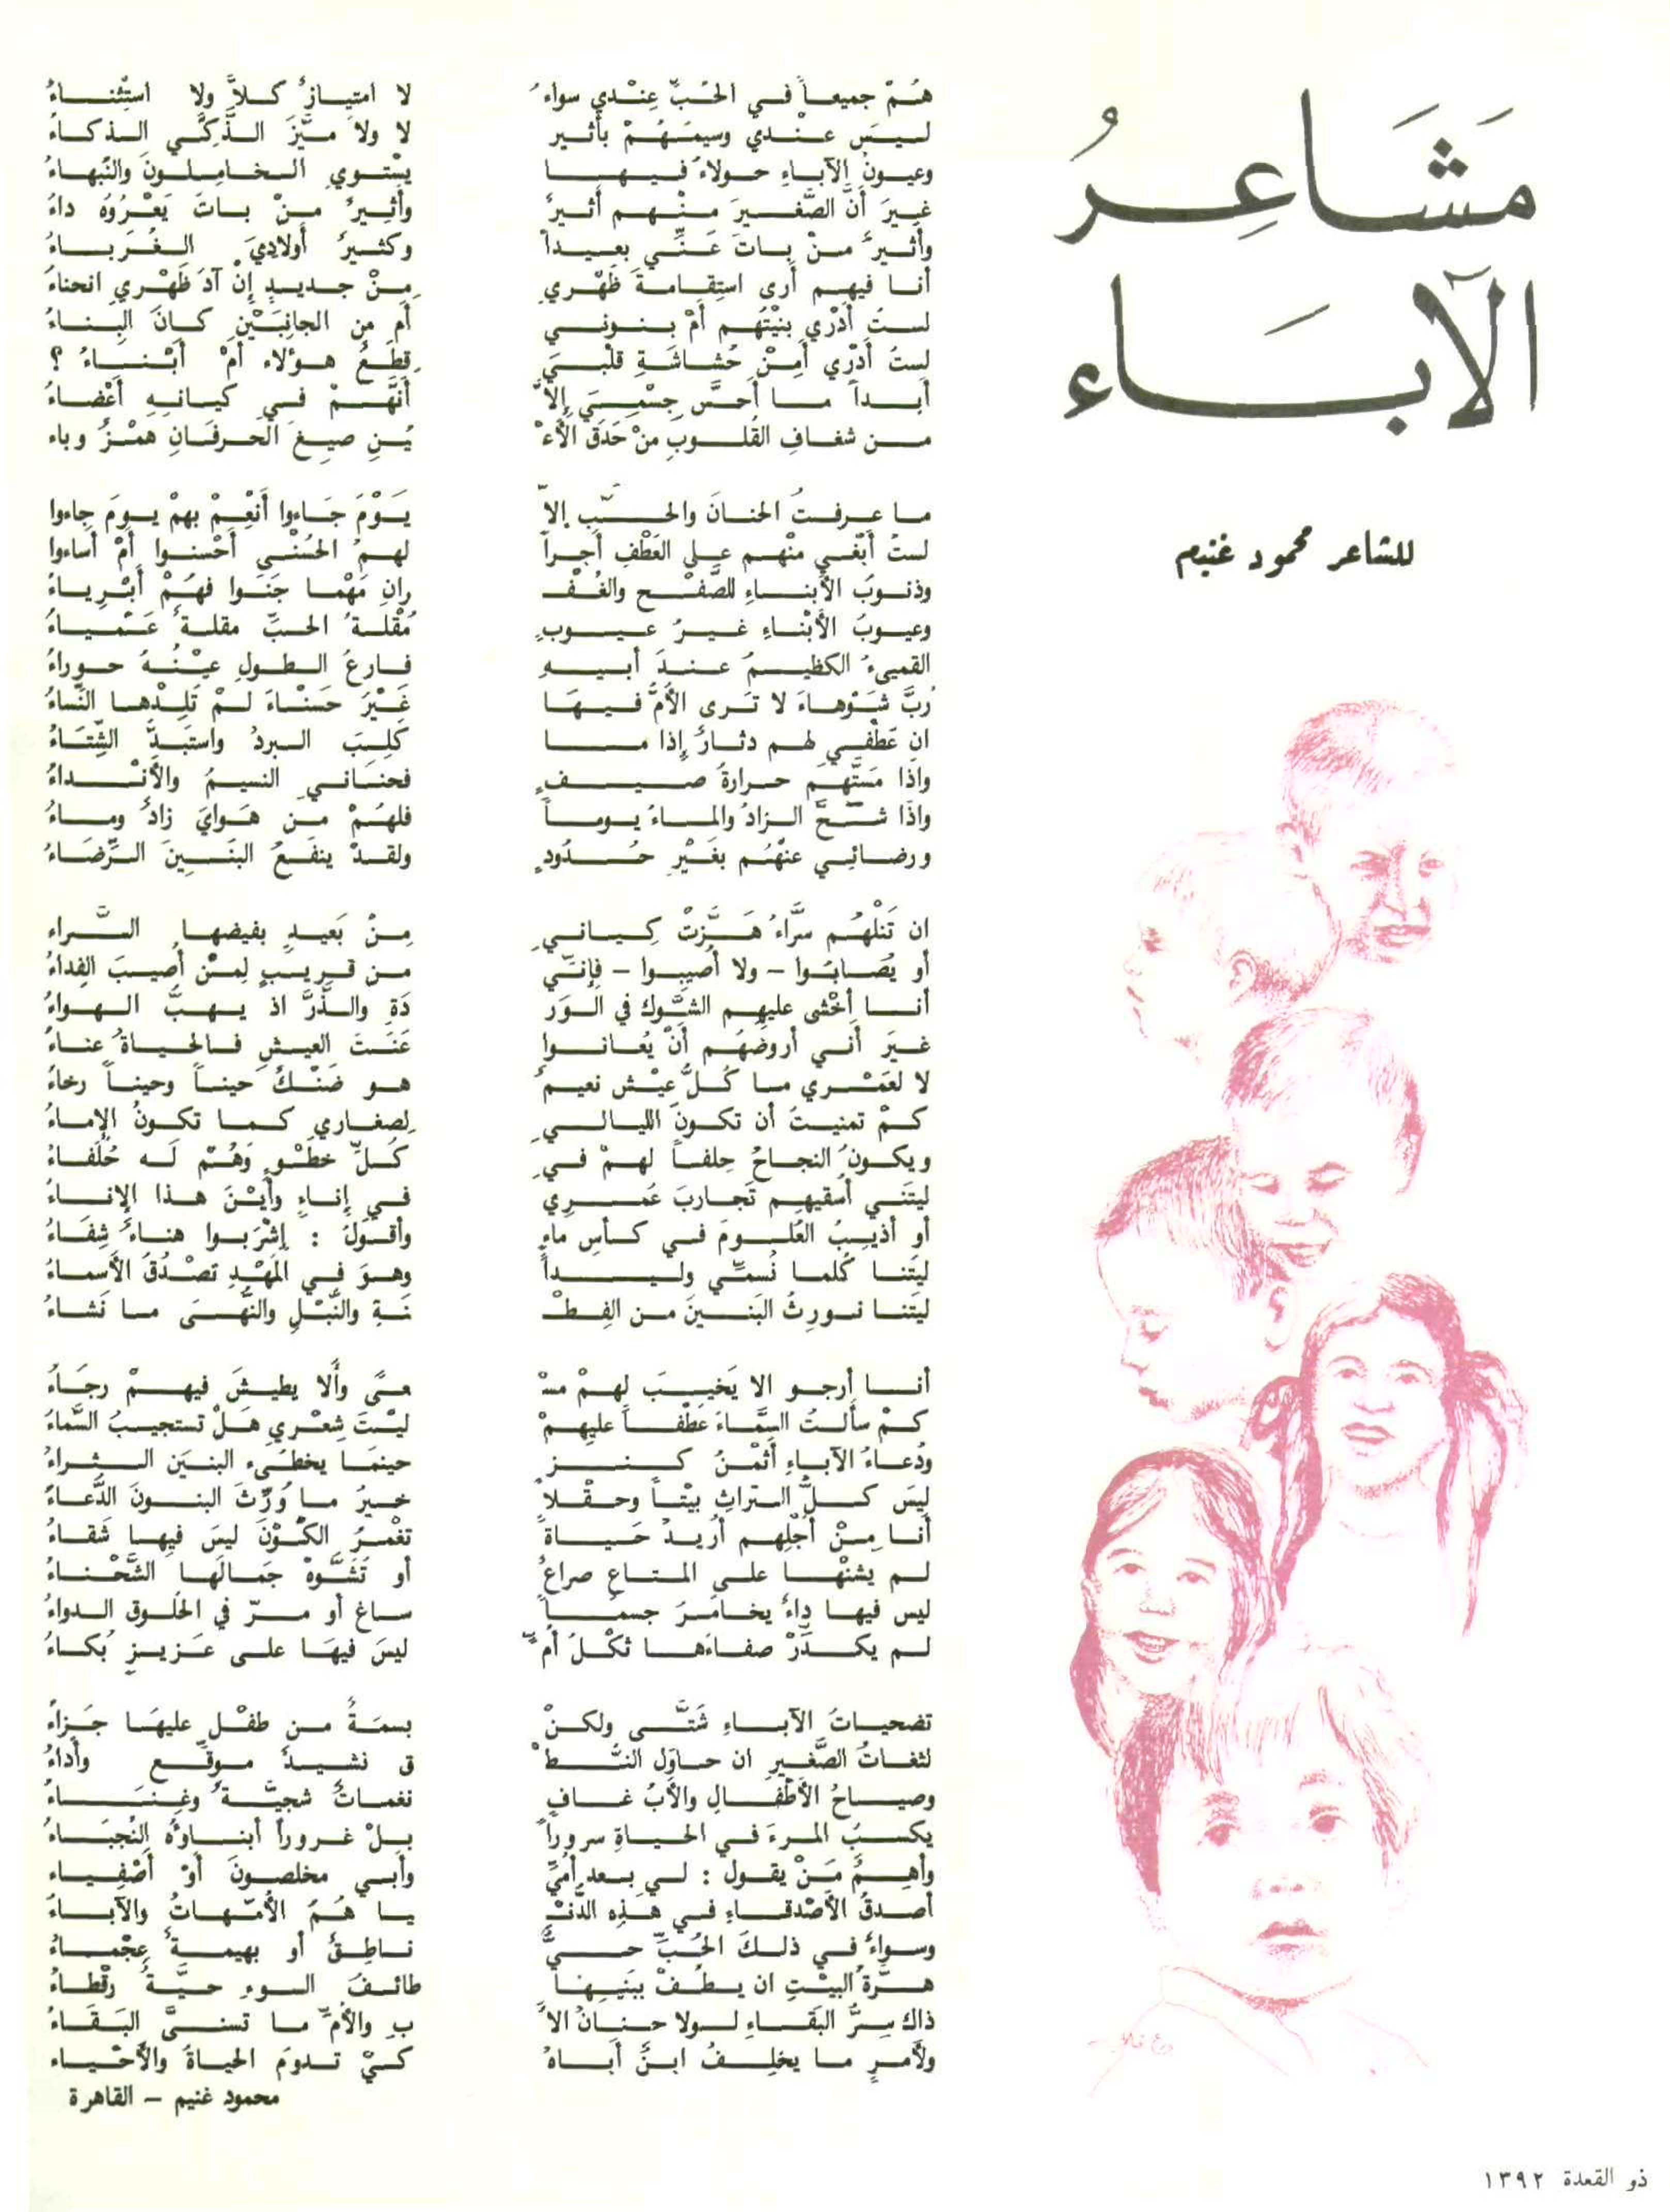 مَشَاعِرُ
الآبَاء
للشاعر محمود غنيم
هُمْ جميعاً في الحُبِّ عِنْدي سواءُ لا امتيازٌ كلاَّ ولا استِثْناءُ
ليسَ عنْدي وسيمُهُمْ بأثير لا ولا ميَّزَ الذَّكيَّ الذكاءُ
وعيونُ الآباءِ حولاءُ فيها يسْتوي الخامِلونَ والنُّبهاءُ
غيرَ أنَّ الصَّغيرَ منْهم أثيرٌ وأثيرٌ منْ باتَ يَعْرُوُه داءُ
وأثيرٌ منْ باتَ عَنِّي بعيداً وكثيرٌ أولادِيَ الغُرَباءُ
أنا فيهم أرى استِقامةَ ظَهْري مِنْ جديدٍ إنْ آدَ ظَهْري انحناءُ
لستُ أدْري بنيْتُهم أمْ بنوني أم مِن الجانِبَيْنِ كانَ البِناءُ
لستُ أدْري أمِنْ حُشاشَةِ قلْبي قِطَعُ هؤلاء أمْ أبْناءُ ؟
أبداً ما أحَسَّ جِسْمِيَ إلاَّ أنَّهُمْ في كيانهِ أعْضاءُ
من شغافِ القُلوبِ منْ حَدَق الأعْـ ـيُنِ صيغَ الحَرفَانِ همْزٌ وباء
ما عرفتُ الحنانَ والحبَّ إلاّ يَوْمَ جَاءوا أنْعِمْ بهمْ يومَ جاءوا
لستُ أبْغي منْهم على العَطْفِ أجراً لهمُ الحُسْنى أحْسنوا أمْ أساءوا
وذنوبُ الأبناءِ للصَّفْحِ والغُفْـ ـرانِ مَهْما جَنَوا فهُمْ أبْرِياءُ
وعيوبُ الأبْناءِ غيرُ عيوبٍ مُقْلةُ الحبِّ مقلةٌ عَمْياءُ
القميءُ الكظيمُ عندَ أبيهِ فارعُ الطولِ عيْنُهُ حوراءُ
رُبَّ شَوْهاءَ لا تَرى الأمُّ فيهَا غَيْرَ حَسْناءَ لمْ تَلِدْها النِّساءُ
ان عَطْفي لهم دثارٌ إذا ما كَلِبَ البردُ واستَبَدَّ الشِّتَاءُ
واذا مَسَّهمَ حرارةُ صيفٍ فحنَاني النسيمُ والأنْداءُ
واذا شحَّ الزادُ والماءُ يوماً فلهُمْ منَ هَوايَ زادٌ وماءُ
ورضائي عنْهُم بغَيْرِ حُدُودٍ ولقدْ ينفَعُ البنَينَ الرِّضَاءُ
ان تَنَلْهُم سرَّاءُ هَزَّتْ كِياني مِنْ بَعيدٍ بفيضها السَّراء
أو يُصَابُوا – ولا أصيبوا – فإنّي من قريبٍ لِمنْ أُصيبَ الفِداءُ
أنا أخْشى عليهم الشَّوك في الوَرْ دَةِ والذَّرَّ اذ يهبُّ الهواءُ
غيرَ أني أروضُهُم أنْ يُعانوا عَنَتَ العيشِ فالحياةُ عناءُ
لا لعَمْري ما كُلُّ عيْش نعيم هو ضَنْكٌ حيناً وحيناً رخاءُ
كمْ تمنيتُ أن تكونَ الليالي لِصغاري كما تكونُ الإماءُ
ويكونُ النجاحُ حِلفاً لهمْ في كلِّ خطْوٍ وهُمْ لَه حُلَفاءُ
ليتَني أسْقيهِم تَجاربَ عُمري في إناءٍ وأيْنَ هذا الإناءُ
أو أذيبُ العُلومَ في كأسِ ماءٍ وأقولُ : اِشْرَبوا هناءٌ شِفَاءُ
ليتَنا كُلما نُسمّي وليداً وهوَ في المَهْدِ تصْدُقُ الأسماءُ
ليتَنا نورِثُ البَنينَ من الفِطْـ ـنَةِ والنُّبْلِ والنُّهَى ما نَشاءُ
أنا أرجو الا يَخيبَ لهمْ مسْـ ـعىً وألا يطيشَ فيهمْ رجَاءُ
كمْ سألتُ السَّماءَ عَطْفاً عليهمْ ليْتَ شِعْري هَلْ تستجيبُ السَّماءُ
ودُعاءُ الآباءِ أثْمْنُ كنز حينمَا يخطيء البنَين الثراءُ
ليسَ كلُّ التراثِ بيْتاً وحقْلاً خيرُ ما وُرِّثَ البنونَ الدُّعاءُ
أنا مِنْ أجْلِهم أُريدُ حَياةً تغْمرُ الكَوْنَ ليسَ فيها شَقاءُ
لم يشنْها على المتاعِ صراعٌ أو تَشَوَّهْ جَمالَها الشَّحْناءُ
ليس فيها داءٌ يخامَرُ جسماً ساغ أو مرّ في الحلوق الدواءُ
لم يكدِّرْ صفاءَها ثكْلُ أمٍّ ليسَ فيهَا على عَزيزٍ بُكاءُ
تضحياتُ الآباءِ شَتَّى ولكنْ بسمَةٌ من طفْلٍ عليهَا جَزاءُ
لثغاتُ الصَّغيرِ ان حاوَل النُّطْـ ق نشيدٌ موقَّع وأداءُ
وصياحُ الأطْفالِ والأبُ غافٍ نغماتٌ شجيَّةٌ وغِناءُ
يكسبُ المرءَ في الحياةِ سروراً بلْ غروراً أبناؤه النُّجبَاءُ
واهِمٌ مَنْ يقول : لي بعد أُمِّي وأبي مخلصونَ أوْ أصْفِياء
أصدقُ الأصْدقاءِ في هَذِه الدُّنْـ يا هُمُ الأمّهاتُ والآباءُ
وسواءٌ في ذلكَ الحُبِّ حيٌّ ناطِقٌ أو بهيمةٌ عِجْماءُ
هرَّةُ البيْتِ ان يطُفْ ببَنيها طائفُ السوءِ حيَّةٌ رقْطاءُ
ذاك سِرُّ البَقاءِ لولا حنانُ الأ بِ والأُمِّ ما تسنىَّ البَقَاءُ
ولأمرٍ ما يخلِفُ ابنٌ أباهُ كيْ تدومَ الحياةُ والأحْياء
محمود غنيم – القاهرة
ذو القعدة ١٣٩٢